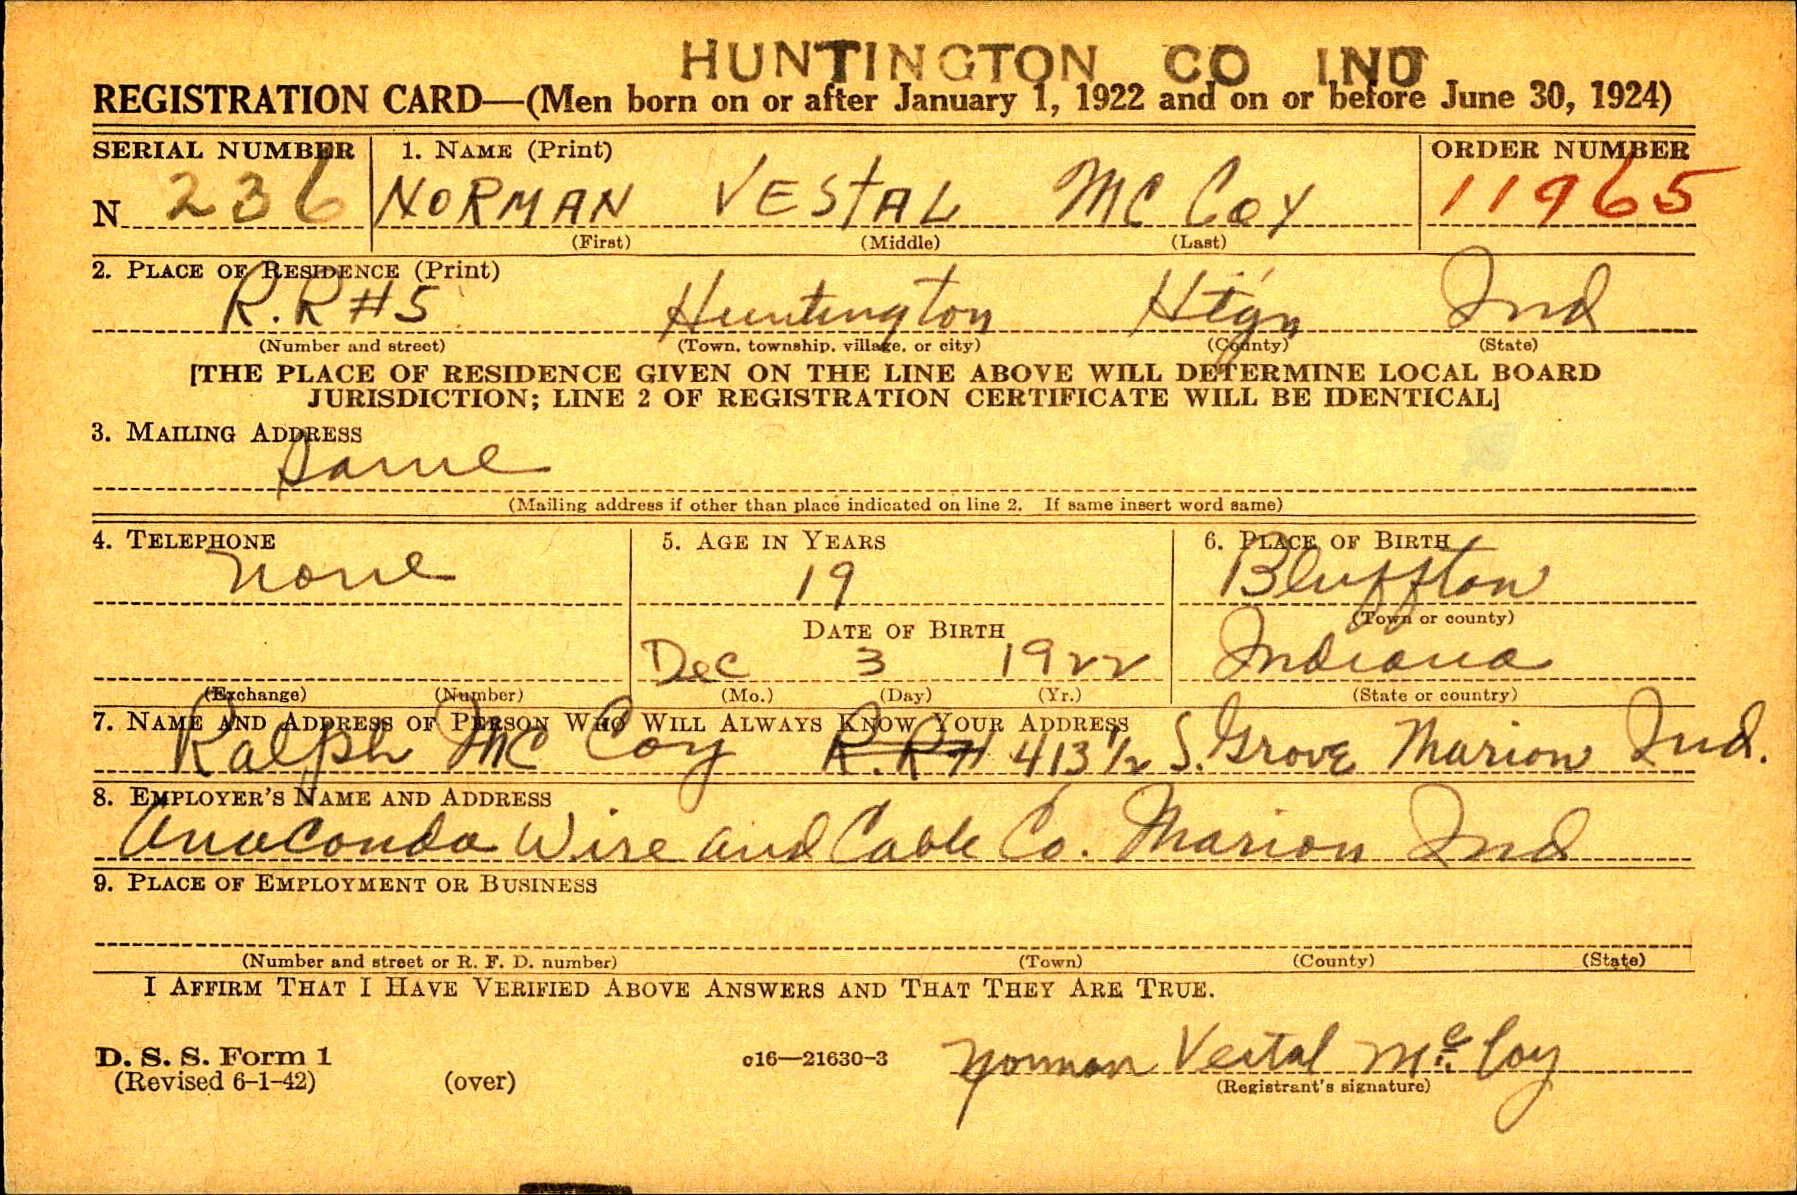 HUNTINGTON CO IND
REGISTRATION CARD—(Men born on or after January 1, 1922 and on or before June 30, 1924)
SERIAL NUMBER 1. NAME (Print) ORDER NUMBER
N 236 NORMAN VESTAL MC COY 11965
(First) (Middle) (Last)
2. PLACE OF RESIDENCE (Print)
R.R #5 Huntington Htgn Ind
(Number and street) (Town, township, village, or city) (County) (State)
[THE PLACE OF RESIDENCE GIVEN ON THE LINE ABOVE WILL DETERMINE LOCAL BOARD
JURISDICTION; LINE 2 OF REGISTRATION CERTIFICATE WILL BE IDENTICAL]
3. MAILING ADDRESS
Same
(Mailing address if other than place indicated on line 2. If same insert word same)
4. TELEPHONE 5. AGE IN YEARS 6. PLACE OF BIRTH
none 19 Bluffton
(Town or county)
DATE OF BIRTH
Dec 3 1922 Indiana
(Exchange) (Number) (Mo.) (Day) (Yr.) (State or country)
7. NAME AND ADDRESS OF PERSON WHO WILL ALWAYS KNOW YOUR ADDRESS
Ralph Mc Coy R.R 413 1/2 S. Grove Marion Ind.
8. EMPLOYER'S NAME AND ADDRESS
Anaconda Wire and Cable Co. Marion Ind
9. PLACE OF EMPLOYMENT OR BUSINESS
(Number and street or R. F. D. number) (Town) (County) (State)
I AFFIRM THAT I HAVE VERIFIED ABOVE ANSWERS AND THAT THEY ARE TRUE.
D. S. S. Form 1 c16—21630-3 Norman Vestal McCoy
(Revised 6-1-42) (over) (Registrant's signature)